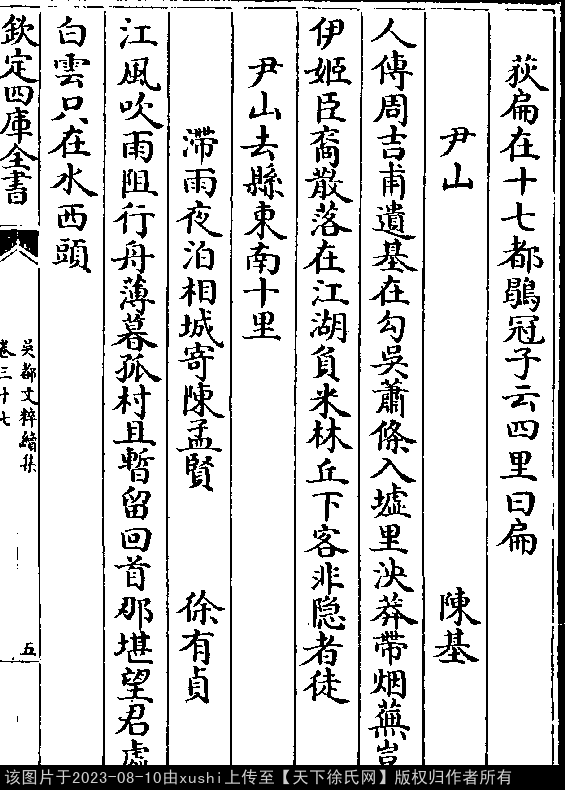 荻扁在十七都鶡冠子云四里曰扁
尹山 陳基
人傳周吉甫遺基在勾吳蕭條入墟里泱莽帶烟蕪豈
伊姬臣裔散落在江湖負米林丘下客非隐者徒
尹山去縣東南十里
滯雨夜泊相城寄陳孟賢 徐有貞
江風吹雨阻行舟薄暮孤村且暫留回首那堪望君處
白雲只在水西頭
欽定四庫全書
吳都文粹續集
卷三十七
五
该图片于2023-08-10由xushi上传至【天下徐氏网】版权归作者所有